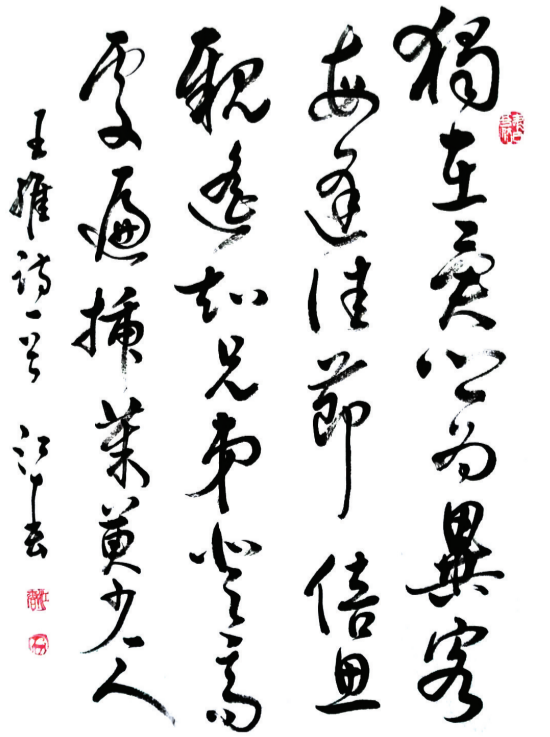 獨在異鄉為異客
每逢佳節倍思
親遙知兄弟登高
處遍插茱萸少一人
王維詩一首 江